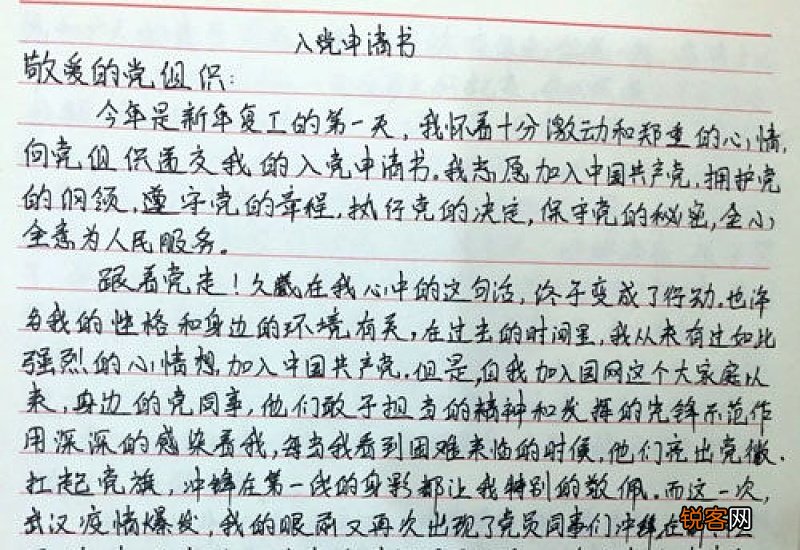 入党申请书
敬爱的党组织:
今年是新年复工的第一天,我怀着十分激动和郑重的心情,
向党组织递交我的入党申请书。我志愿加入中国共产党,拥护党
的纲领,遵守党的章程,执行党的决定,保守党的秘密,全心
全意为人民服务。
跟着党走!久藏在我心中的这句话,终于变成了行动。也许
与我的性格和身边的环境有关,在过去的时间里,我从未有过如此
强烈的心情想加入中国共产党。但是,自我加入国网这个大家庭以
来,身边的党同事,他们敢于担当的精神和发挥的先锋示范作
用深深的感染着我,每当我看到困难来临的时候,他们亮出党徽.
扛起党旗,冲锋在第一线的身影都让我特别的敬佩。而这一次,
武汉疫情爆发,我的眼前又再次出现了党员同事们冲锋在
锐客网